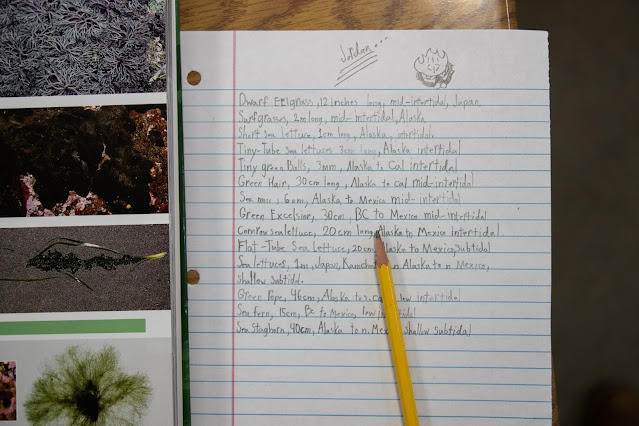 Jordan...
Dwarf Eelgrass, 12 inches long, mid-intertidal, Japan.
Surfgrasses, 2m long, mid-intertidal, Alaska
Short sea lettuce, 1cm long, Alaska, intertidal.
Tiny-Tube Sea lettuces 3cm long, Alaska intertidal
Tiny green Balls, 3mm, Alaska to Cal intertidal
Green Hair, 30cm long, Alaska to cal mid-intertidal
Sea moss, 6mm, Alaska to Mexico mid-intertidal
Green Excelsior, 30cm, BC to Mexico mid-intertidal
Cornrow sea lettuce, 20cm long, Alaska to Mexico intertidal
Flat-Tube Sea lettuce, 20cm, Alaska to Mexico, subtidal
Sea lettuces, 1m, Japan, Alaska to n Mexico,
shallow subtidal.
Green Rope, 46cm, Alaska to s. cal, low intertidal
Sea fern, 15cm, BC to Mexico, low intertidal
Sea Staghorn, 40cm, Alaska to n. Mexico shallow subtidal